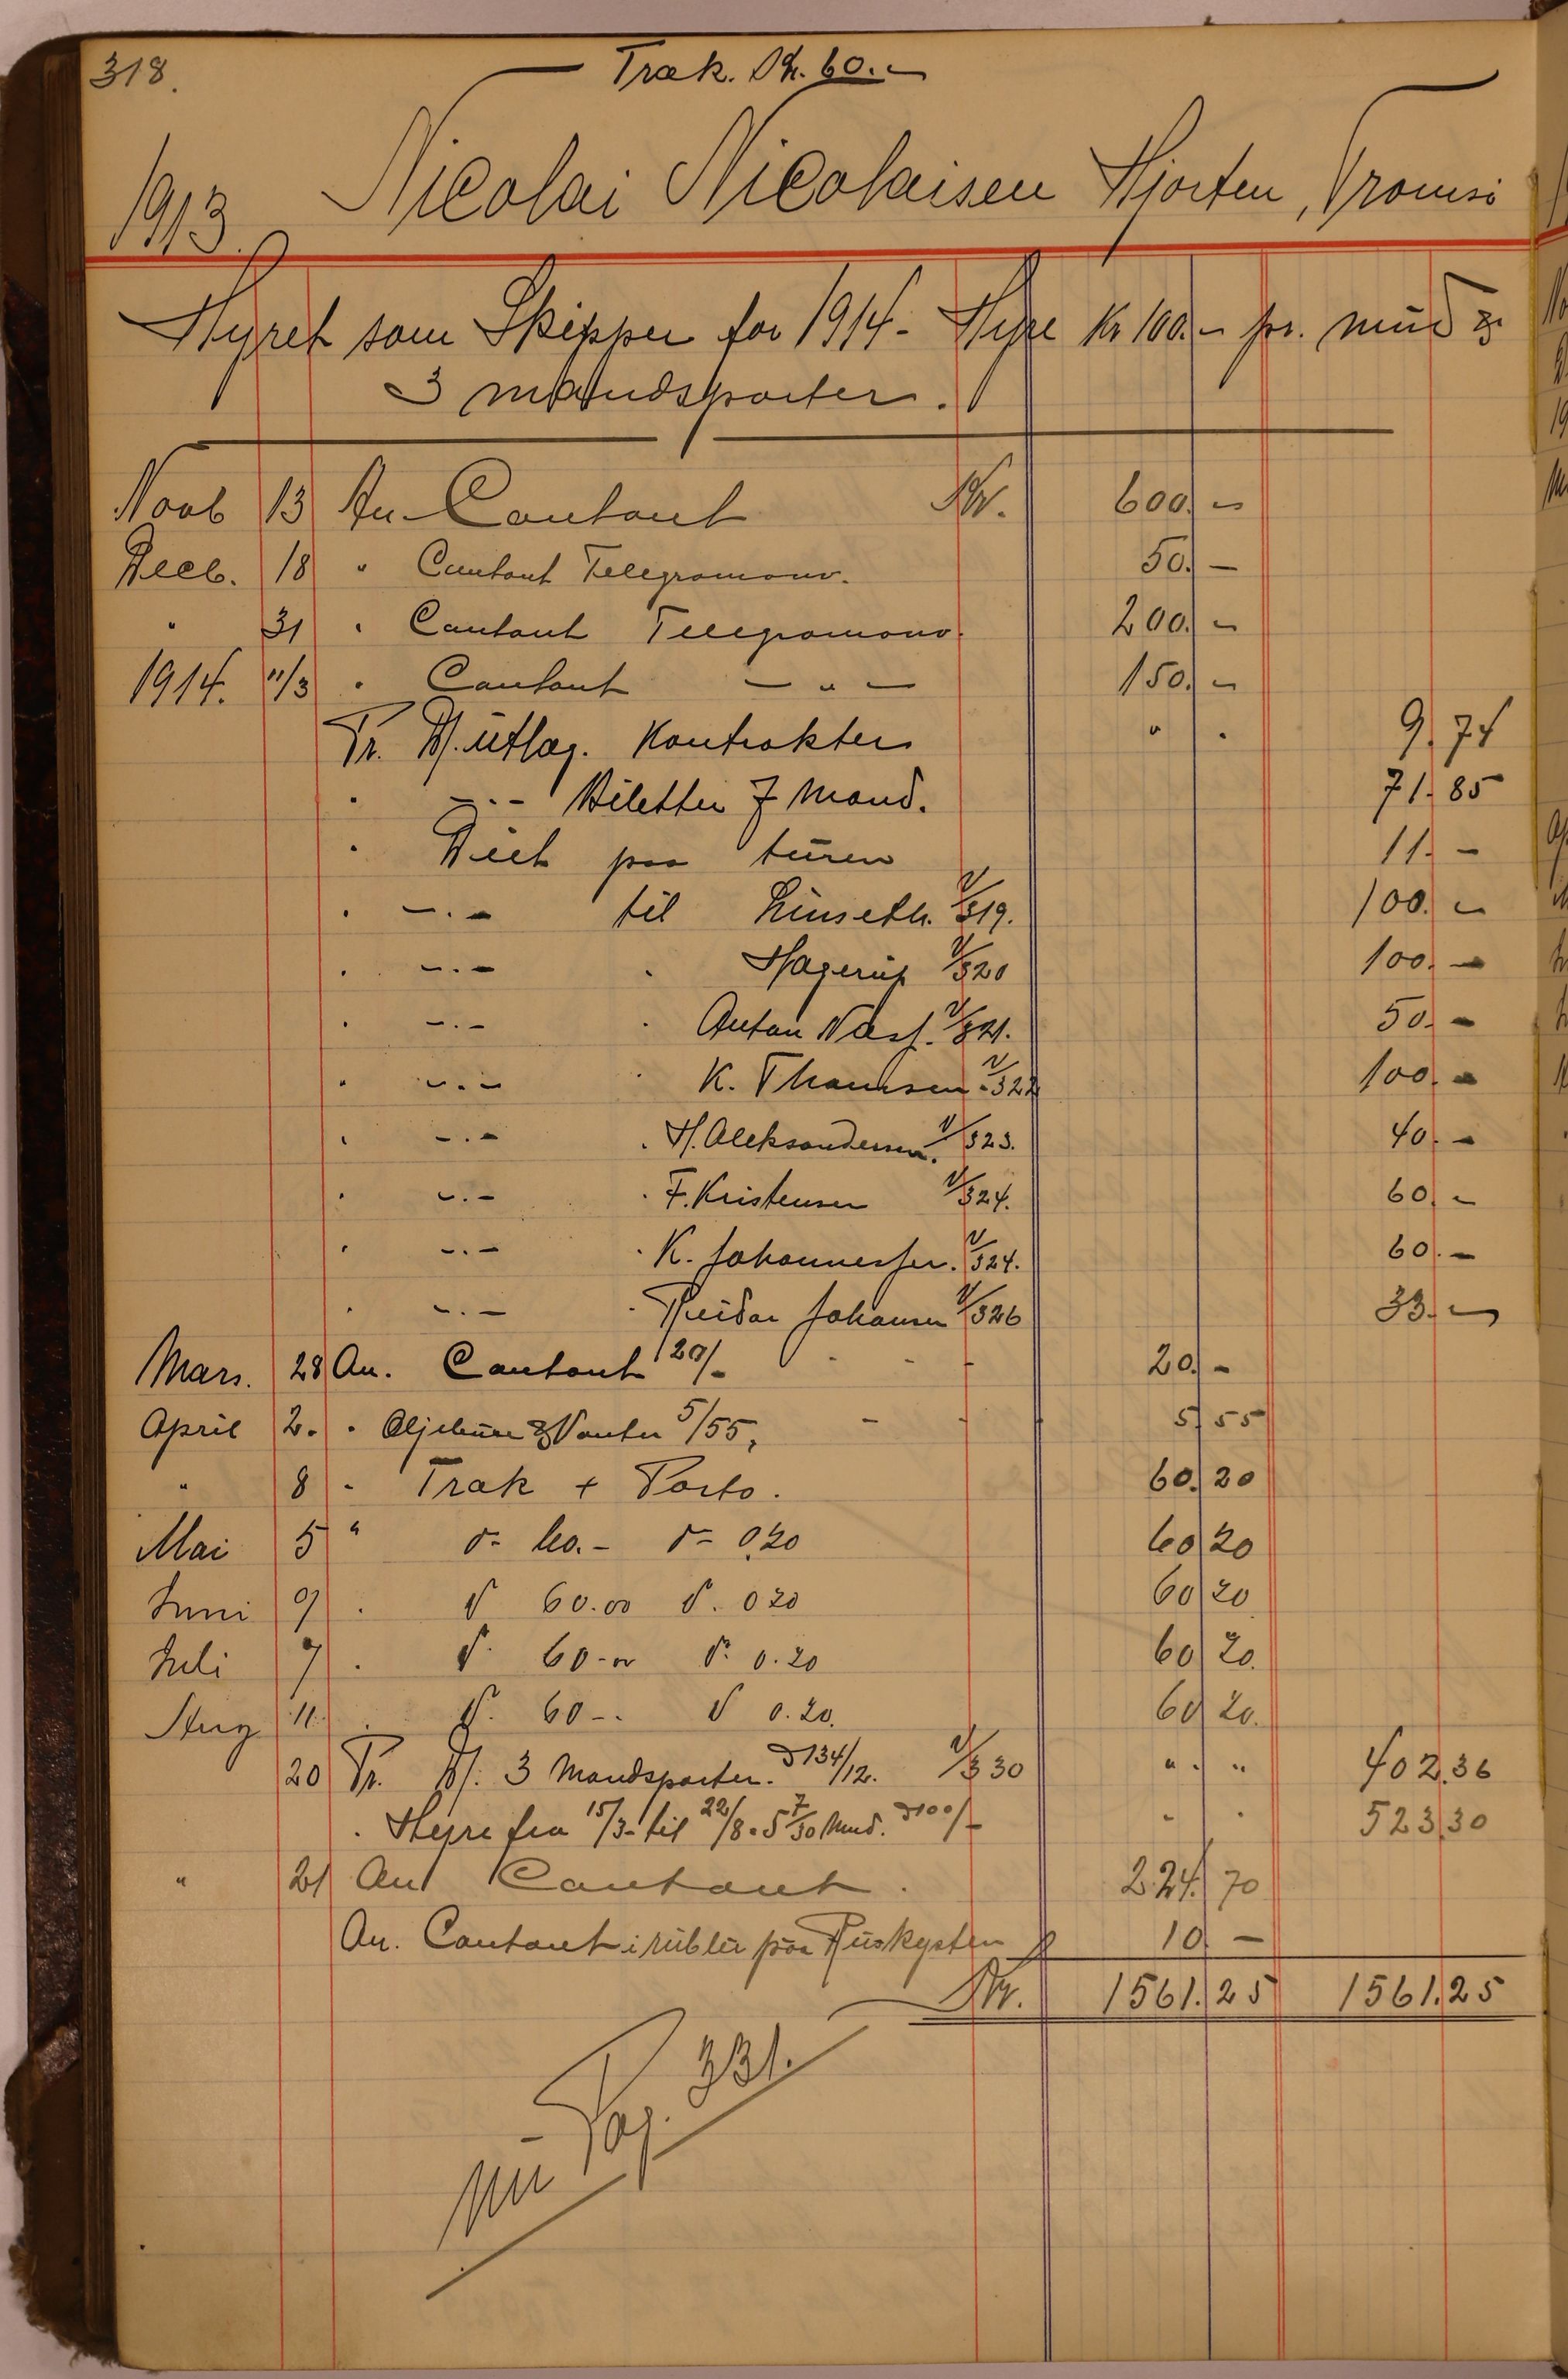 318.
Træk. Kr. 60.-
1913. Nicolai Nicolaisen Hjorten, Tromsö
Hyret som Skipper for 1914 - Hyre Kr 100.- pr. mnd &
3 mandsparter.
Novb 13 An Contant Kr. 600.-
Decb. 18 " Contant Telegramanv. 50.-
" 31 " Contant Telegramanv. 200.-
1914. 11/3 " Contant -"- 150.-
Pr. D/. Utlæg. Kontrakter " . 9.74
" -.- Biletter 7 Mand. 71.85
" Diet paa turen 11.-
" -.- til Linseth. V/319. 100.-
" -.- " Hagerup V/320 100.-
" -.- " Anton Næss. V/321. 50.-
" -.- " K. Thomsen V/322 100.-
" -.- " H. Aleksandersen. V/323. 40.-
" -.- " F. Kristensen V/324. 60.-
" -.- " K. Johannessen. V/324. 60.-
" -.- " Reidar Johansen V/326 33.-
Mars. 28 An. Contant 20/- 20.-
April 2. " Oljebuxe & Vanter 5/55, 5.55
" 8 " Træk + Porto. 60.20
Mai 5 " d= 60.- d= 0.20 60.20
Juni 9 . d 60.00 d. 0 20 60 20
Juli 7 . d. 60-00 d. 0.20 60 20.
Aug 11. . d. 60-. d 0.20. 60 20.
20 Pr. D/. 3 Mandsparter. à 134/12. V/330 " . " 402.36
. Hyre fra 15/3- til 22/8. 5 7/30 Mnd. à 100/- " . 523.30
" 21 An Contant. 224.70
An. Contant i rubler paa Ruskysten 10 -
Kr. 1561.25 1561.25
Pag. 331.